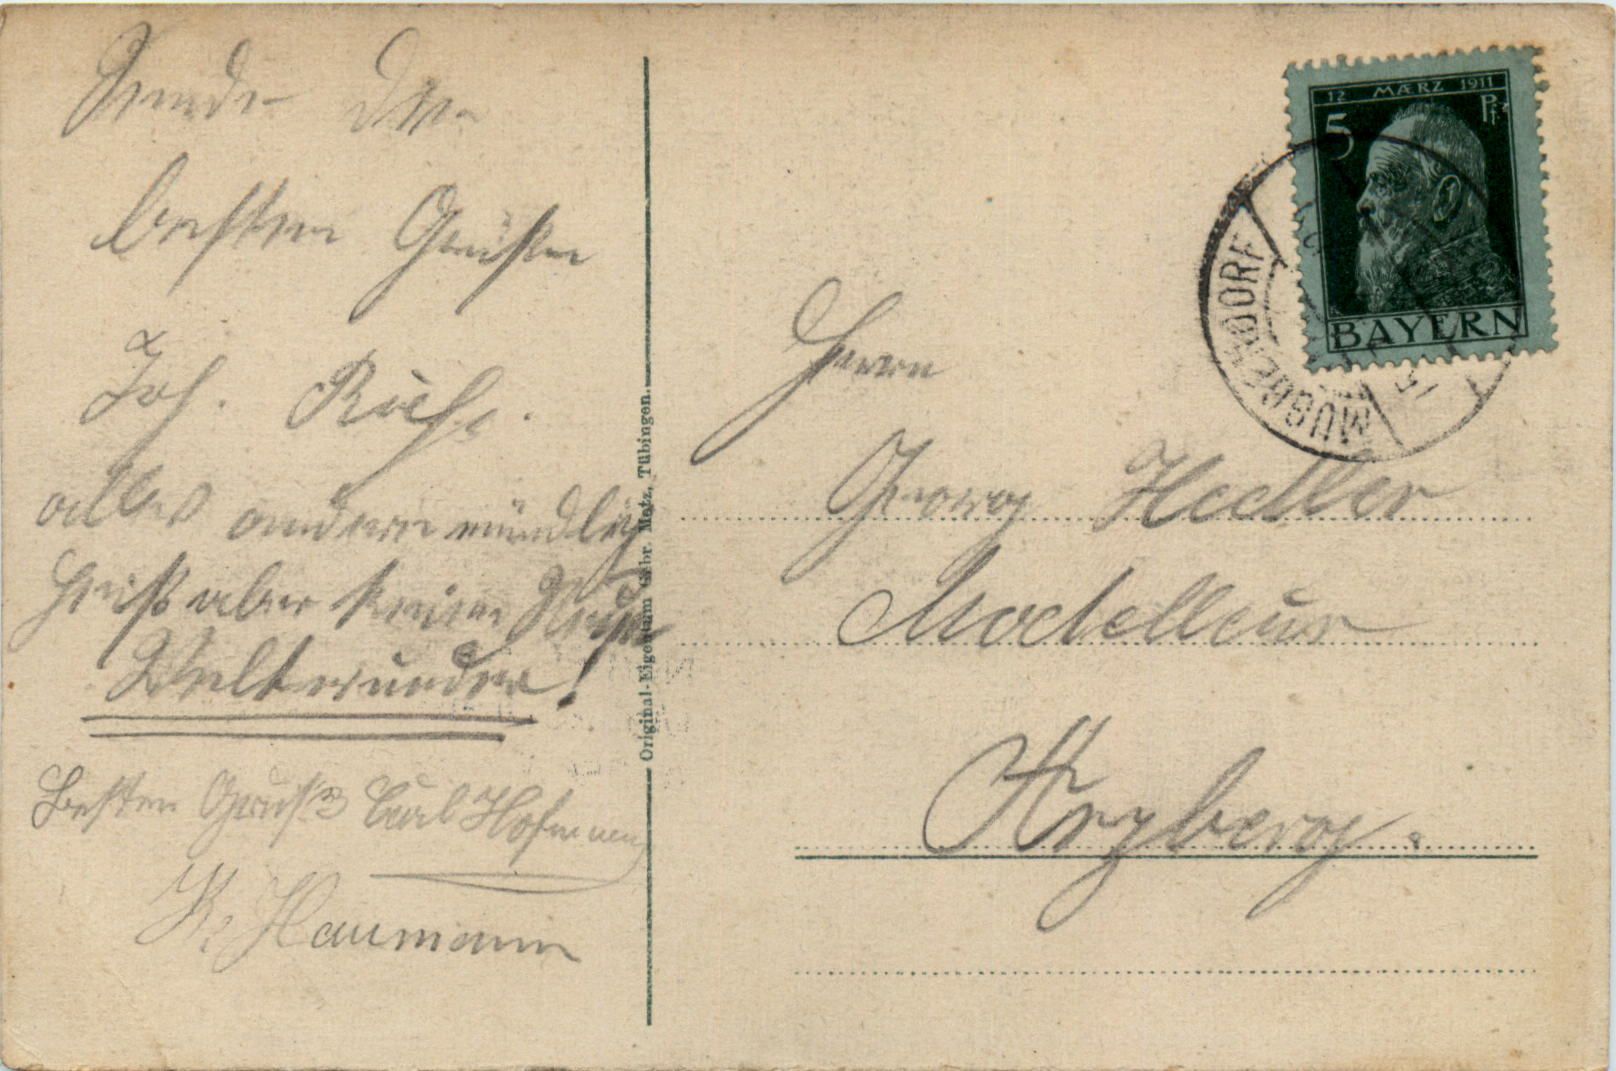 Sende die
besten Grüße
Joh. Rieß.
alles andere mündlich
heißt aber keine
Weltwunder!
Besten Gruß Carl Hofmann
K. Haumann
Original-Eigentum Gebr. Metz, Tübingen.
12 MÆRZ 1911
5 Pf.
BAYERN
MUGGENDORF
Herrn
Georg Hedler
Modelleur
Arzberg.